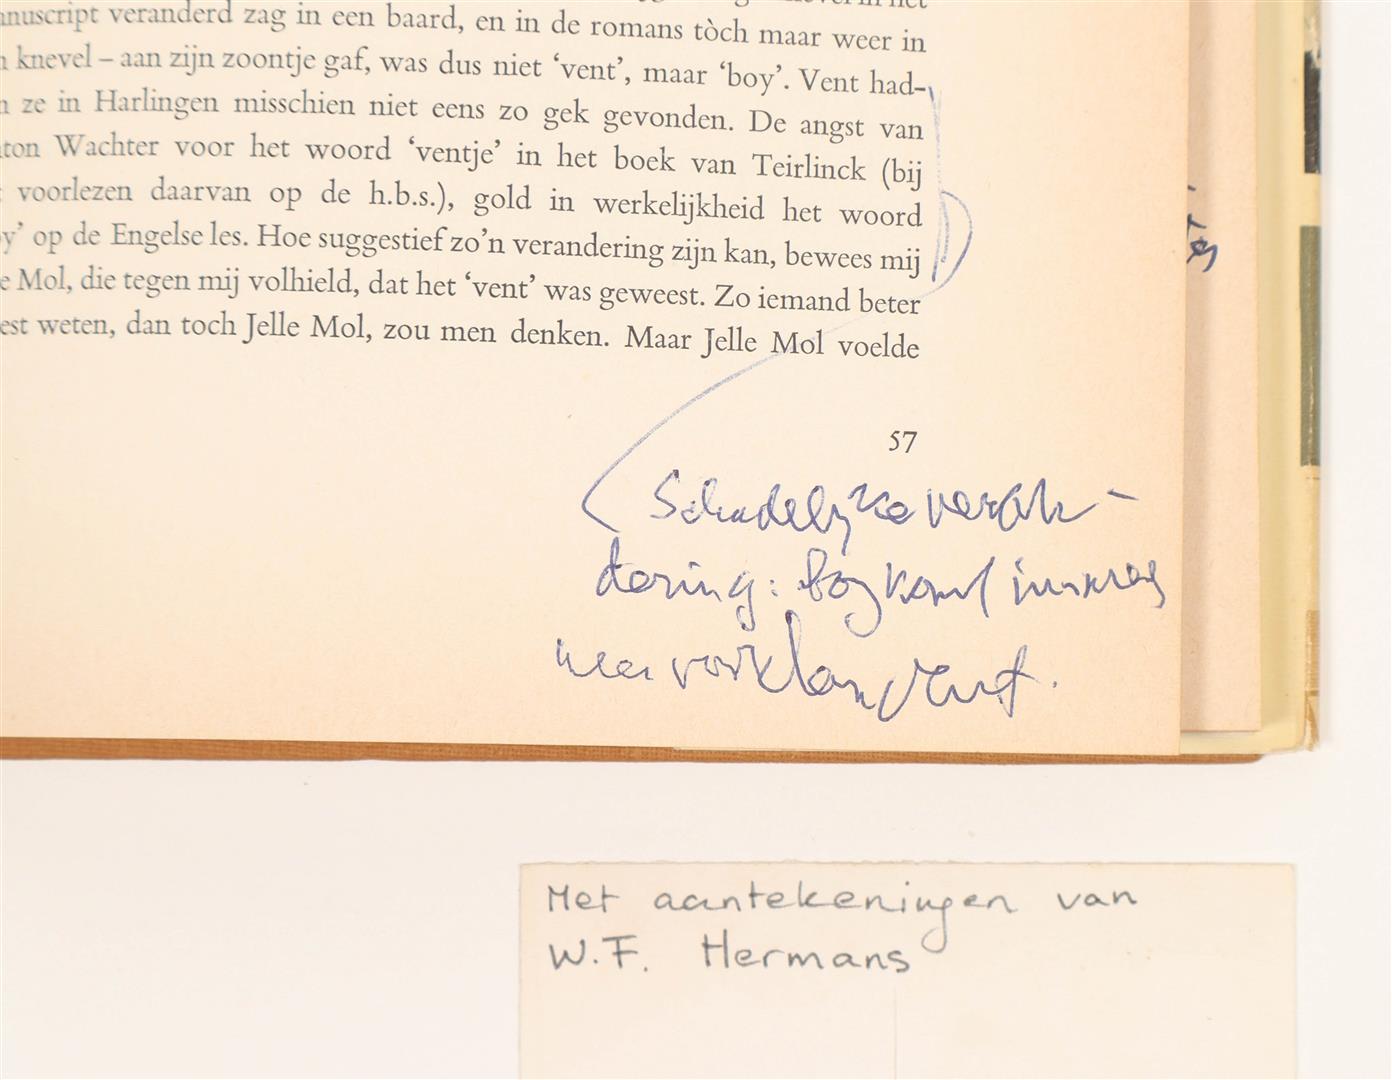 nuscript veranderd zag in een baard, en in de romans tòch maar weer in
knevel – aan zijn zoontje gaf, was dus niet ‘vent’, maar ‘boy’. Vent had-
n ze in Harlingen misschien niet eens zo gek gevonden. De angst van
ton Wachter voor het woord ‘ventje’ in het boek van Teirlinck (bij
voorlezen daarvan op de h.b.s.), gold in werkelijkheid het woord
y’ op de Engelse les. Hoe suggestief zo’n verandering zijn kan, bewees mij
e Mol, die tegen mij volhield, dat het ‘vent’ was geweest. Zo iemand beter
est weten, dan toch Jelle Mol, zou men denken. Maar Jelle Mol voelde
57
Schadelijke veran-
dering: boy komt immers
neer van vent.
Met aantekeningen van
W.F. Hermans